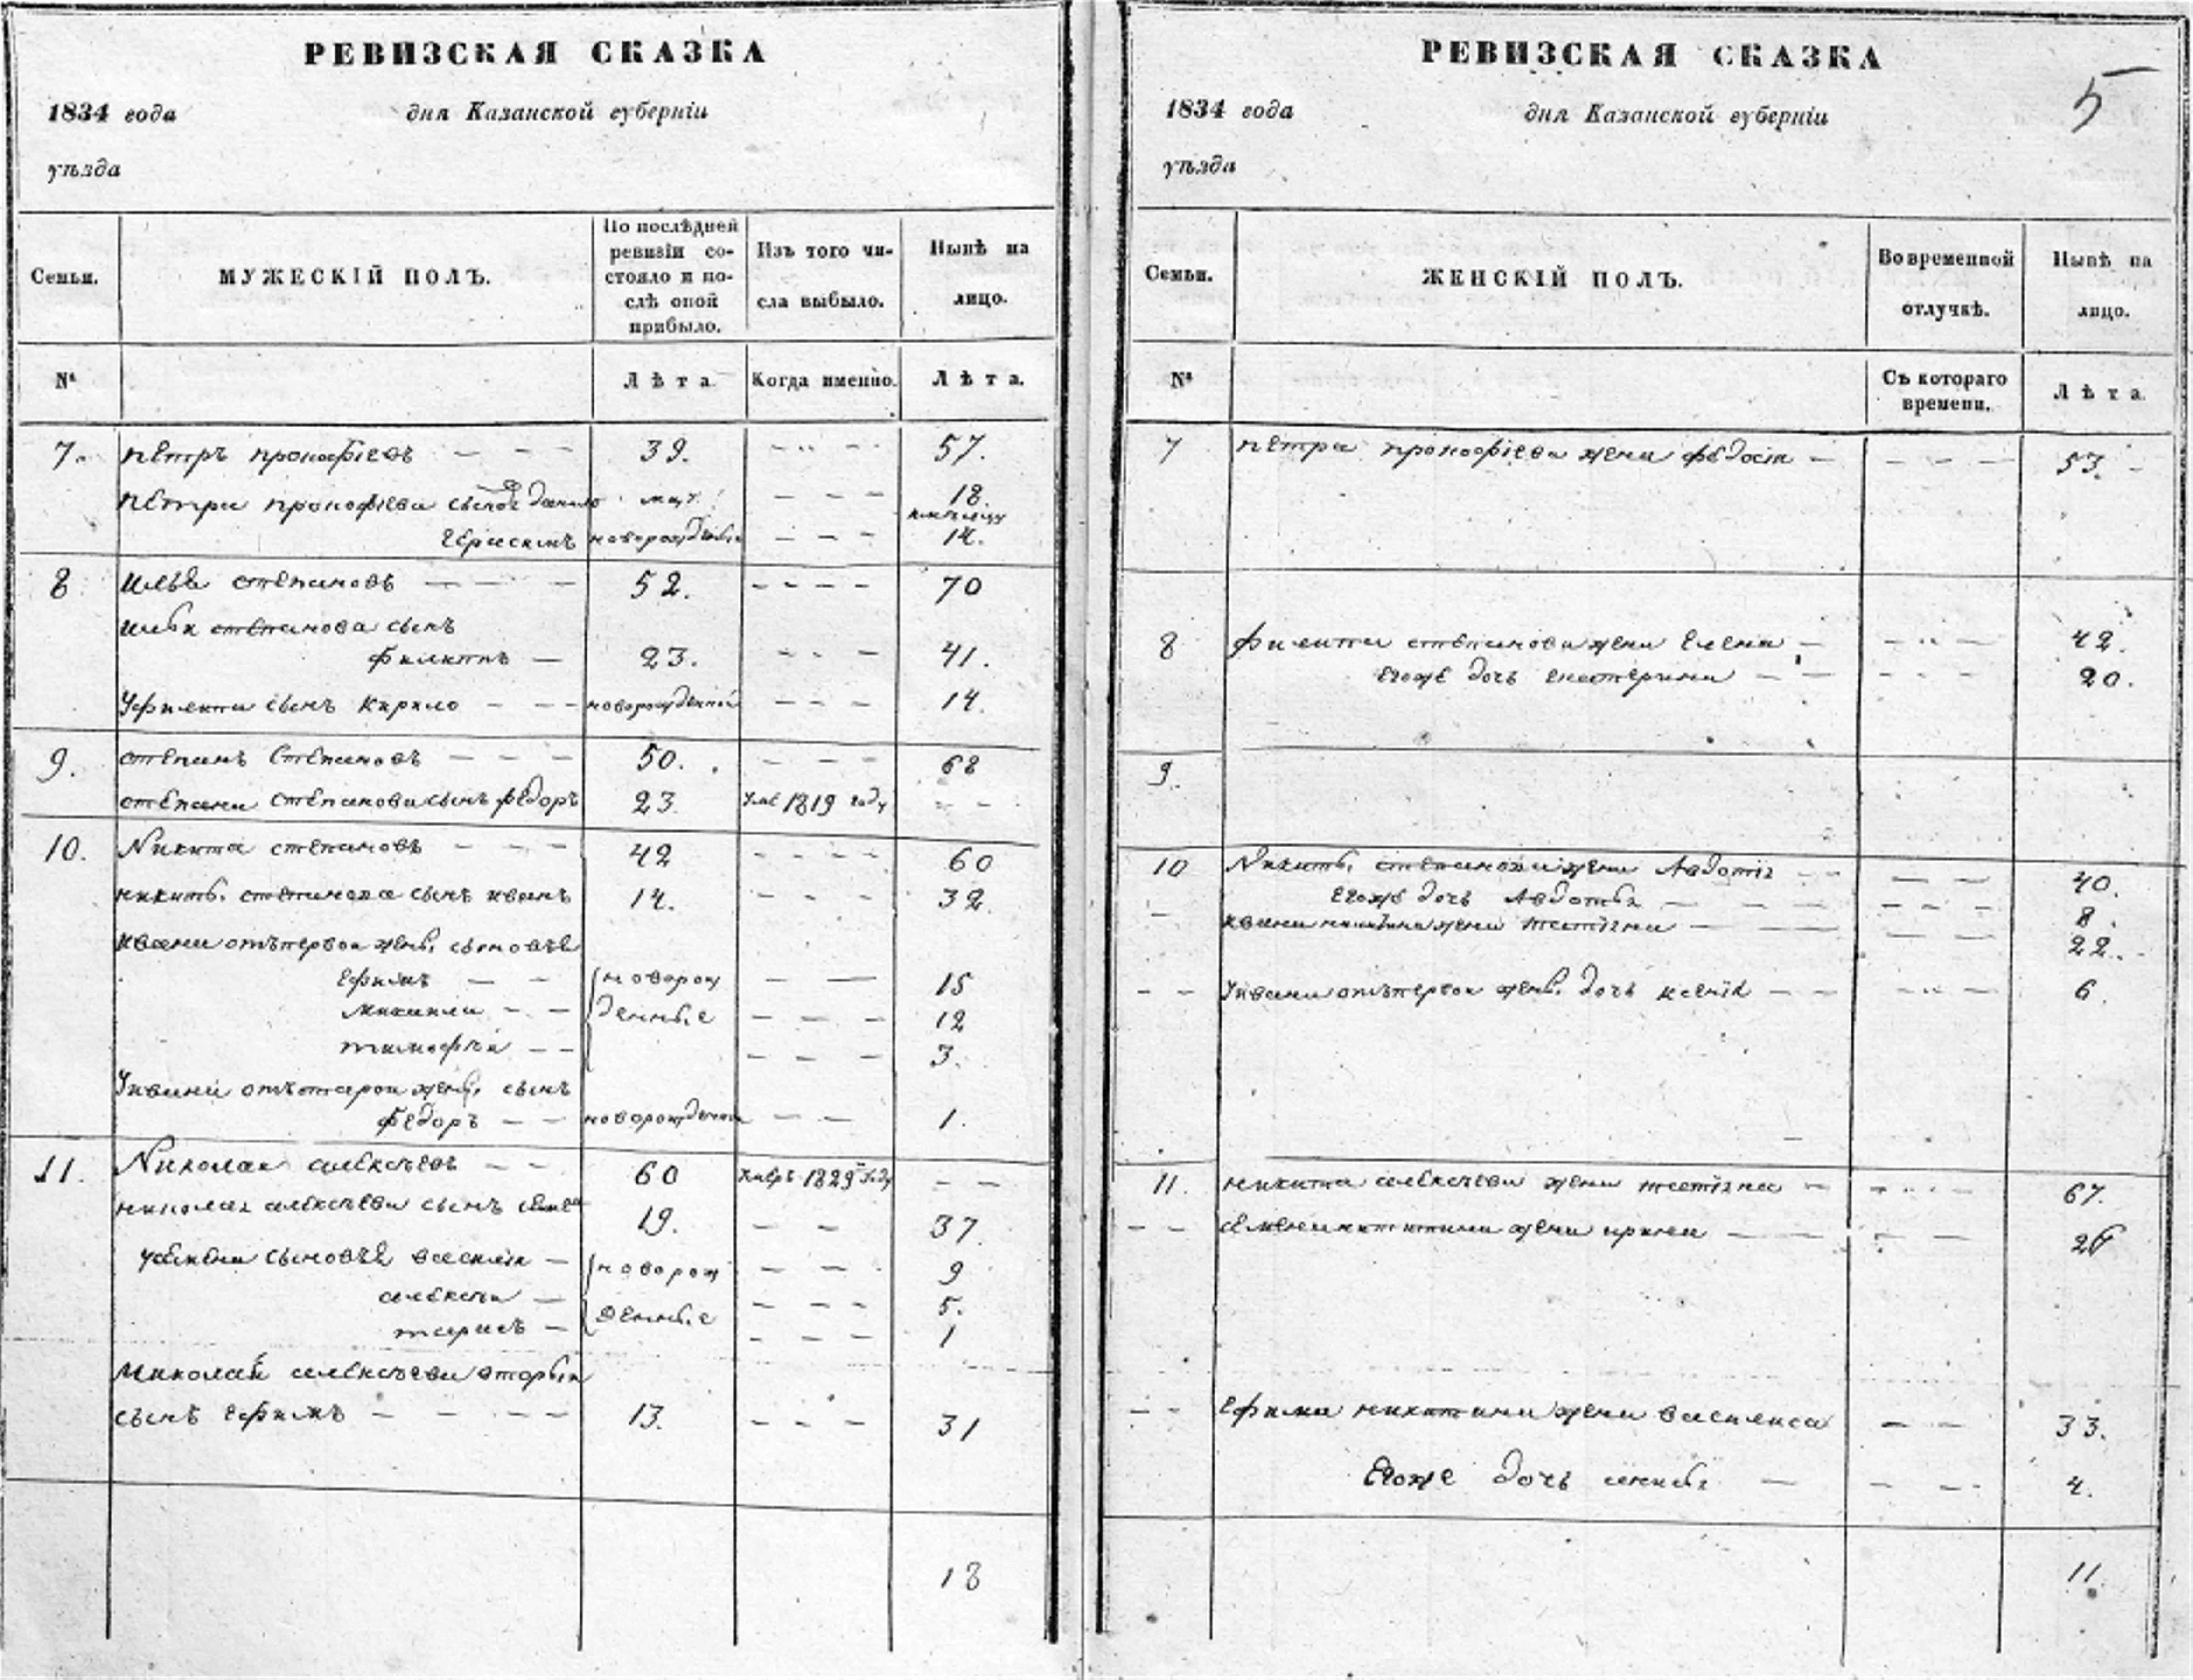 РЕВИЗСКАЯ СКАЗКА
1834 года дня Казанской губерніи
уѣзда
Семьи. МУЖЕСКІЙ ПОЛЪ. По послѣдней ревизіи состояло и послѣ оной прибыло. Изъ того числа выбыло. Нынѣ на лицо.
№ Лѣта. Когда именно. Лѣта.
7. петръ прокофіевъ — — — 39. — — — 57.
петра прокофіева данило — — — 18.
герасимъ новорожденны — — — 14.
8 Илья степановъ — — — 52. — — — — 70
ильи степанова сынъ
филипъ — 23. — — — 41.
У филипа сынъ кирило — — — новорожденной — — — 14.
9. степанъ Степановъ — — — 50. — — — 68
степана степанова сынъ федоръ 23. 1819 году — —
10. Никита степановъ — — — 42 — — — — 60
никиты степанова сынъ иванъ 14. — — — 32.
ивана отъ первои жены сыновья
ефимъ — — новорож — — 15
микаила — — денные — — — 12
тимофѣи — — — — — 3.
У ивана отъ втарои жены сынъ
федоръ — — новорожденны — — 1.
11. Николаи алексѣевъ — — 60 1829 году — —
николая алексѣева сынъ 19. — — 37.
сыновья василѣи — новорож — — 9
алексѣи — денные — — — 5.
тарасъ — — — — 1
Николай алексѣева вторыи
сынъ ефимъ — — — — 13. — — — 31
18
РЕВИЗСКАЯ СКАЗКА 5
1834 года дня Казанской губерніи
уѣзда
Семьи. ЖЕНСКІЙ ПОЛЪ. Во временной отлучкѣ. Нынѣ на лицо.
№ Съ котораго времени. Лѣта.
7 петра прокофіева жена федосія — — — — 53. —
8 филипа степанова жена елена — — — — 42.
егоже дочь екатерина — — — — — 20.
9.
10 Никиты степанова жена Авдотія — — — — 40.
егоже дочь Авдотья — — — — — 8.
ивана никитина жена татіяна — — — — 22.
— — У ивана отъ первои жены дочь ксенія — — — — — 6.
11. никита алексѣева жена татіяна — — — — 67.
— — семена никитина жена ирина — — — —
— — ефима никитина жена василиса — — 33.
Егоже дочь — — — 4.
11.